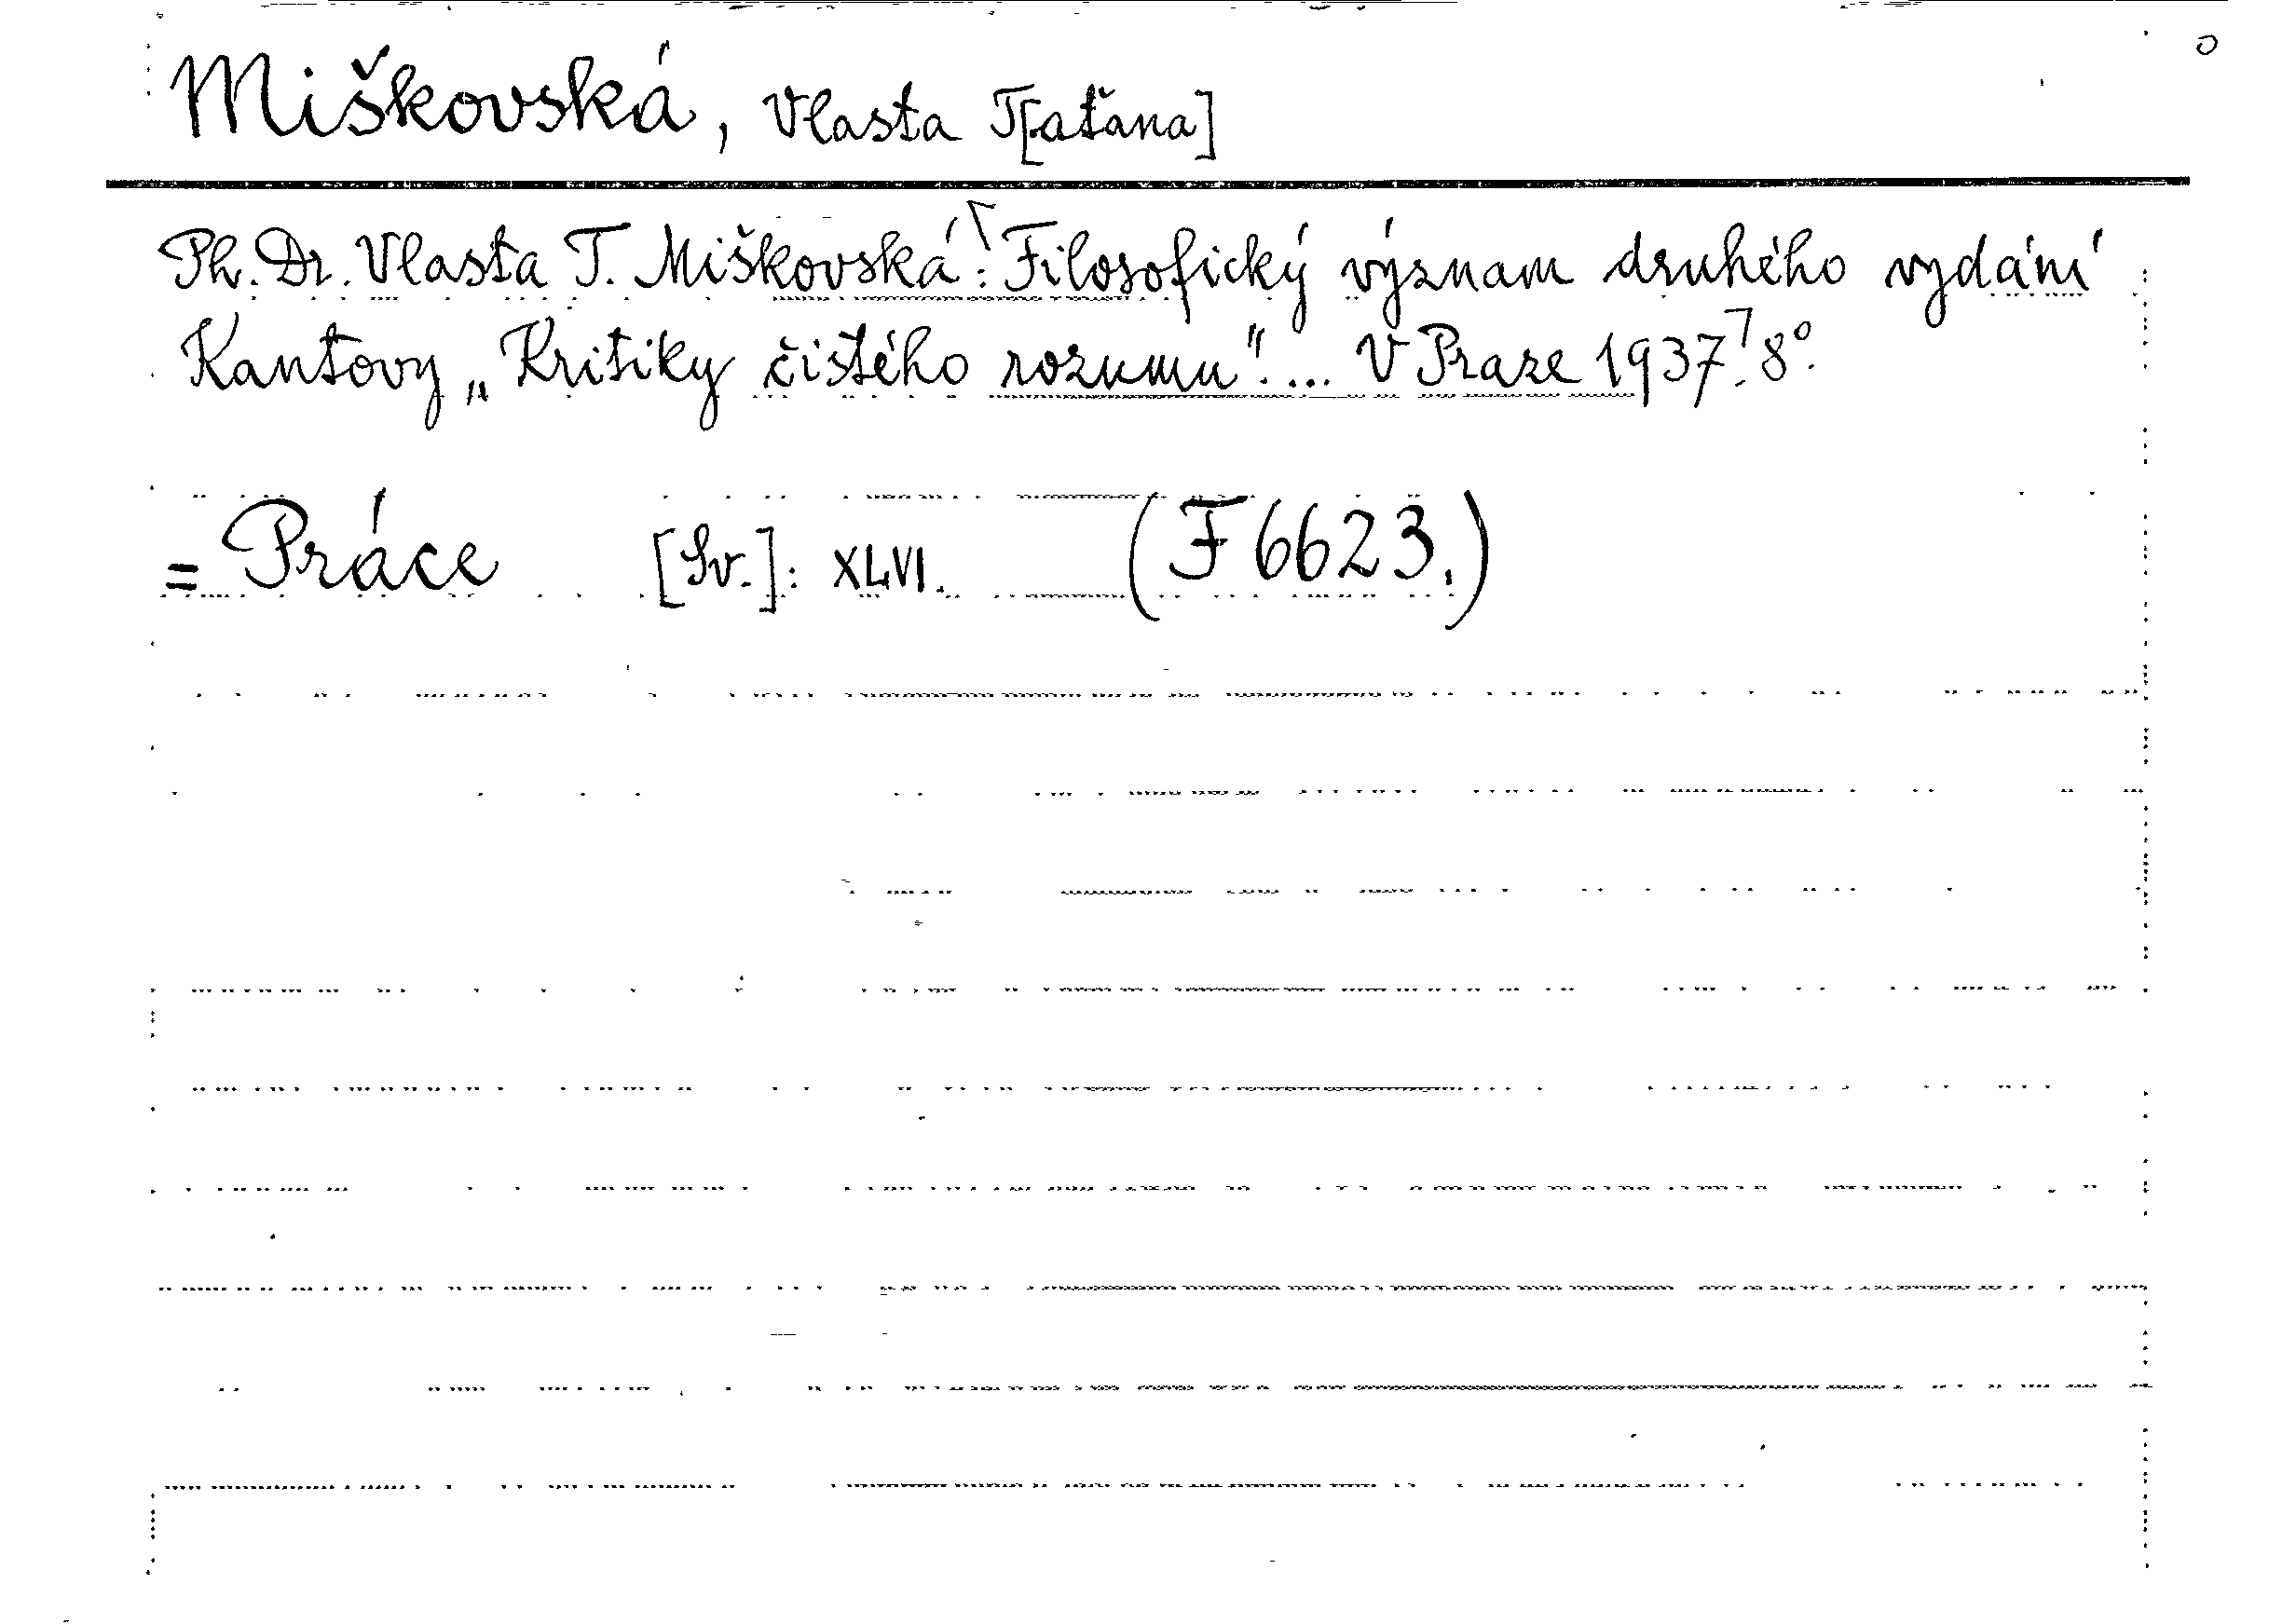 Miškovská, Vlasta T[aťána]
Ph. Dr. Vlasta T. Miškovská: Filosofický význam druhého vydání
Kantovy „Kritiky čistého rozumu". ... V Praze 1937. 8°.
= Práce [Sv.]: XLVI. (F 6623.)